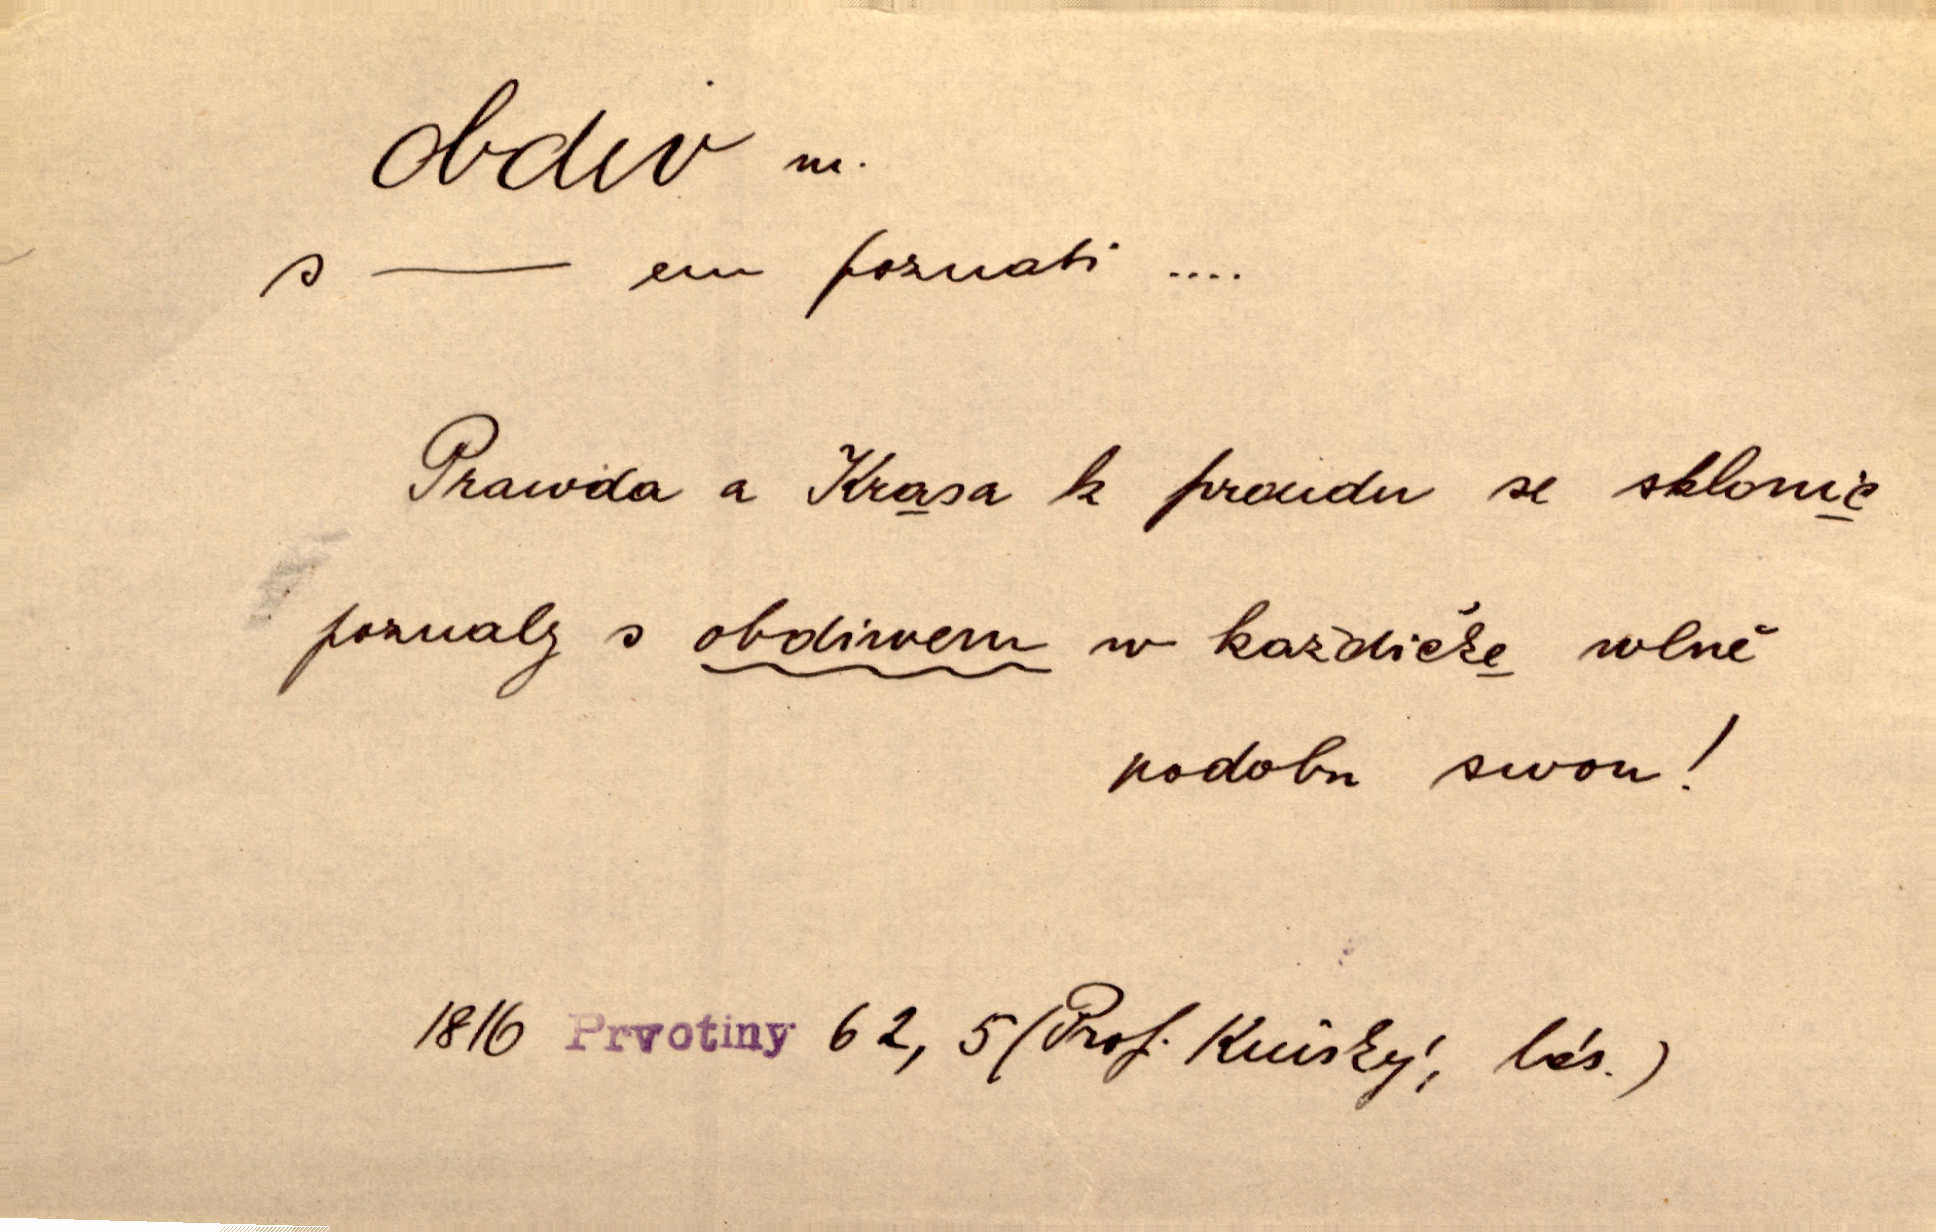 obdiv m.
s — em poznati ....
Prawda a Krasa k praudu se sklonic
poznaly s obdiwem w každičke wlně
podobu swou!
1816 Prvotiny 62, 5 (Prof. Kinský, bás.)